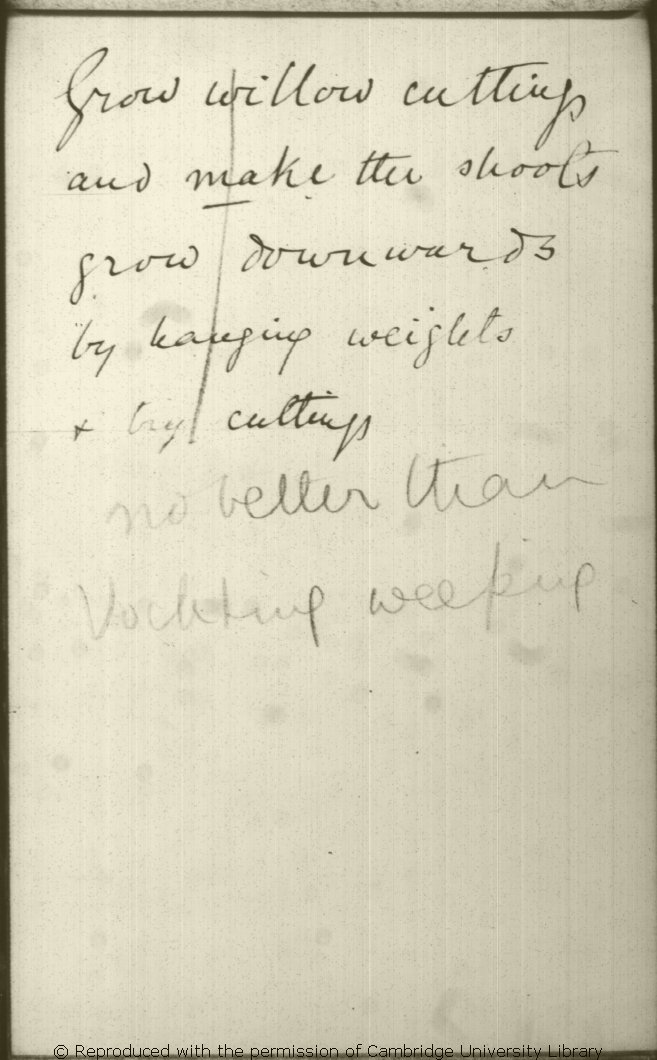 Grow willow cuttings
and make the shoots
grow downwards
by hanging weights
+ try cuttings
no better than
Vochting weeping
© Reproduced with the permission of Cambridge University Library